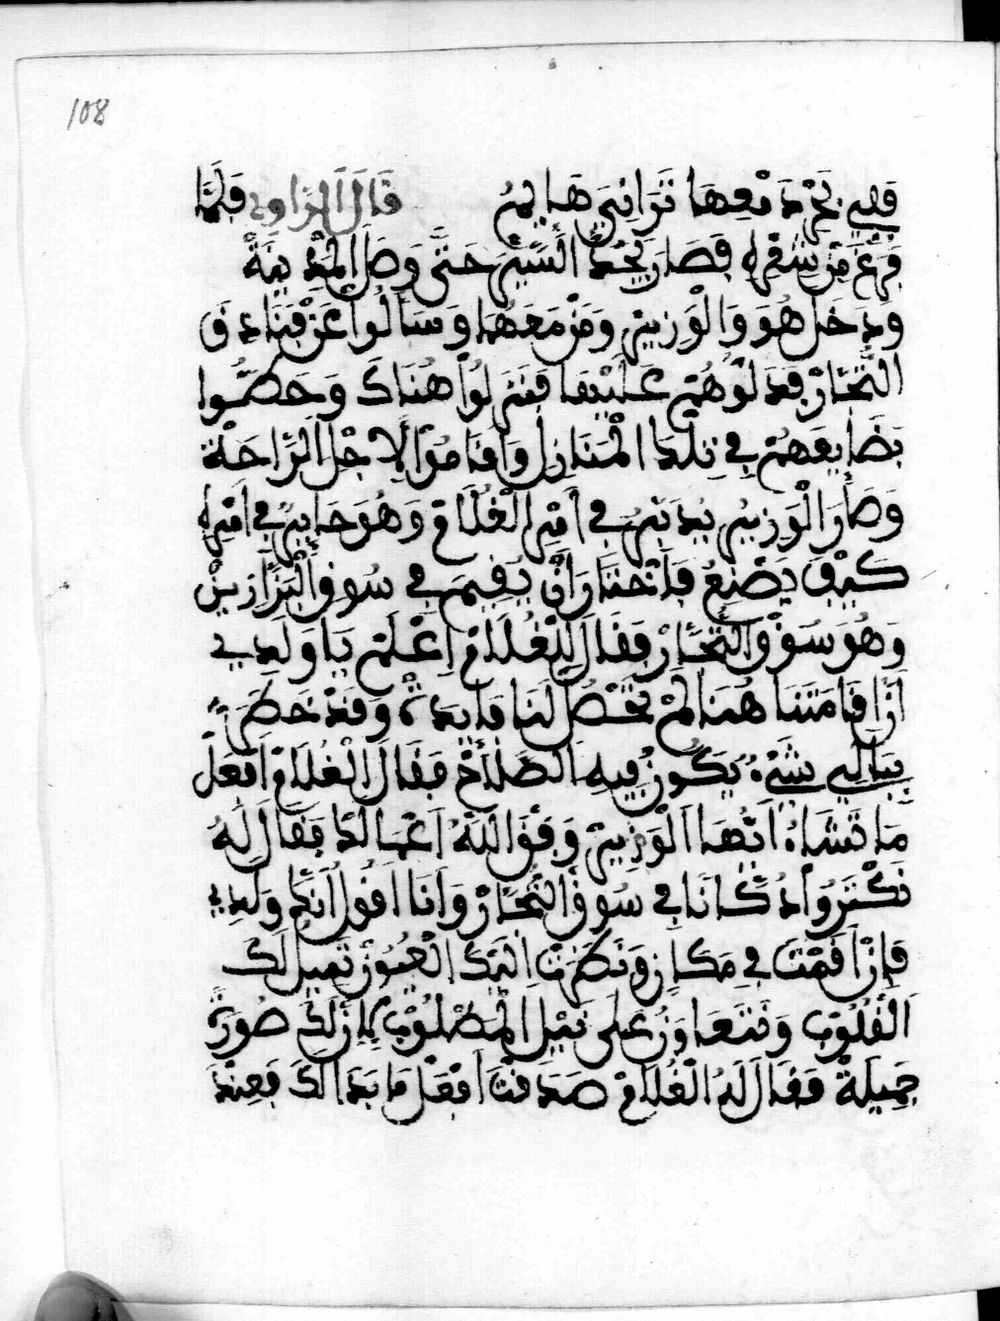 108
ففي بحر دمعها تراني هايم قال الراوي فلما
فرغ من شعره فصار يجد السير حتى وصل المدينة
ودخل هو والوزير ومن معهما وسألوا عن فنادق
التجار فدلوهم عليها فنزلوا هناك وحطوا
بضايعهم في تلك المنازل وأقاموا لاجل الراحة
وصار الوزير يدبر في أمر الغلام وهو حاير في أمره
كيف يصنع فاختار أن يقيم في سوق البزازين
وهو سوق التجار فقال للغلام اعلم يا ولدي
أن إقامتنا هنا لم تحصل لنا فايدة وقد خطر
ببالي شيء يكون فيه الصلاح فقال الغلام افعل
ما تشاء أيها الوزير وفق الله أعمالك فقال له
نكتروا دكانا في سوق التجار وأنا أقول أنك ولدي
فإن أقمت في مكان ونظرت اليك العيون تميل لك
القلوب ونتعاون على نيل المطلوب لان لك صورة
جميلة فقال له الغلام صدقت افعل ما بدا لك فعند